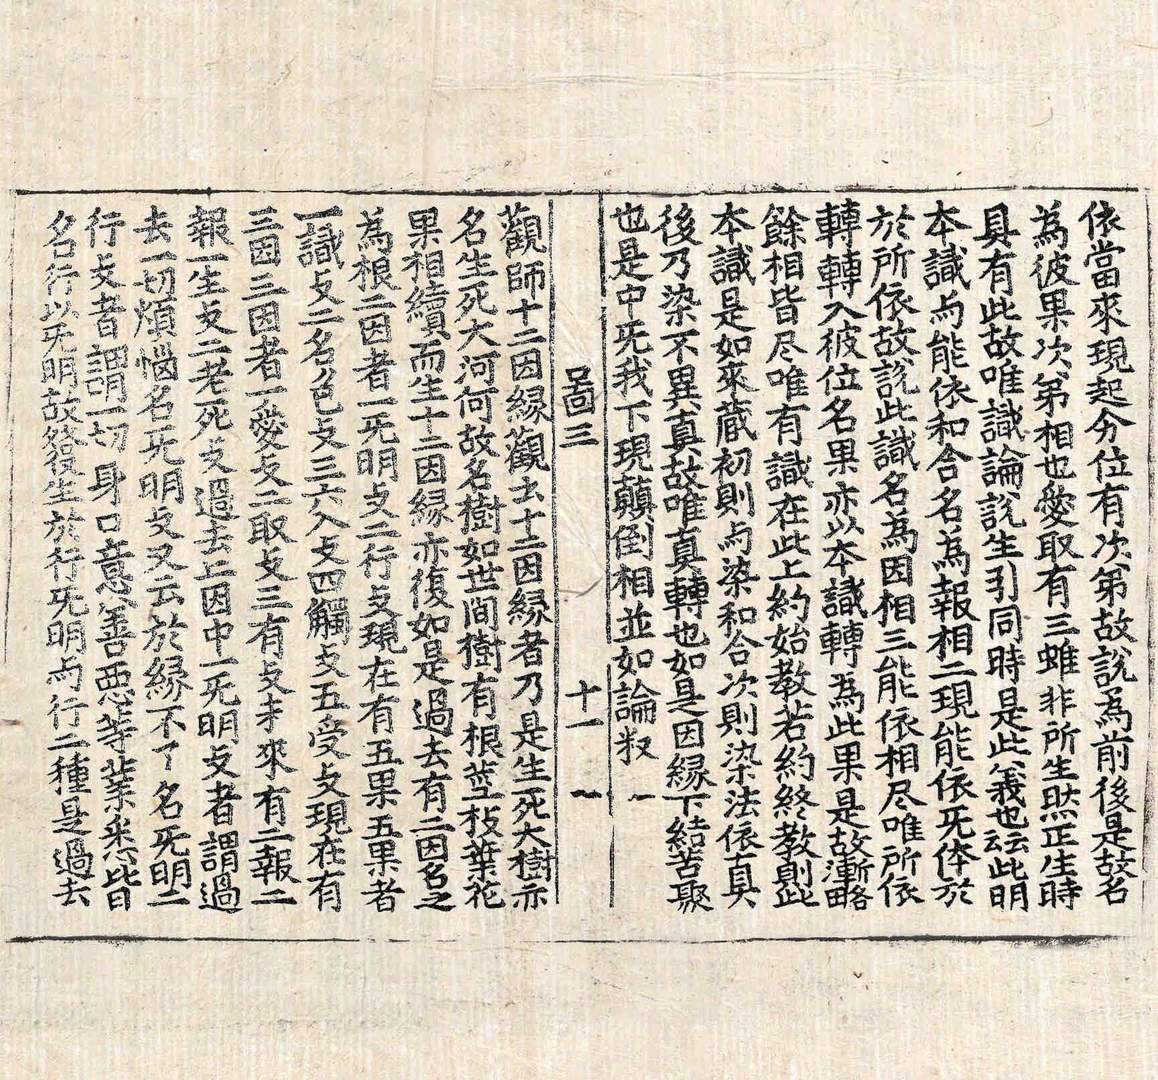 依當來現起分位有次第故說為前後是故名
為彼果次第相也愛取有三雖非所生𦡳正生時
具有此故唯識論說生引同時是此義也云此明
本識与能依和合名為報相二現能依旡体於
於所依故說此識名為因相三能依相尽唯所依
轉轉入彼位名果亦以本識轉為此果是故漸略
餘相皆尽唯有識在此上約始教若約終教則此
本識是如來蔵初則与染和合次則染法依真
後乃染不異真故唯真轉也如是因縁下結苦聚
也是中旡我下現顛倒相並如論叙
啚三 十一
觀師十二因縁觀云十二因縁者乃是生死大樹亦
名生死大河何故名樹如世間樹有根莖枝葉花
果相續而生十二因縁亦復如是過去有二因名之
為根二因者一旡明支二行支現在有五果五果者
一識支二名色支三六入支四觸支五受支現在有
三因三因者一愛支二取支三有支未來有二報二
報一生支二老死支過去二因中一旡明支者謂過
去一切煩惱名旡明支又云於縁不了名旡明二
行支者謂一切身口意善惡等業悉皆
名行以旡明故發生於行旡明与行二種是過去